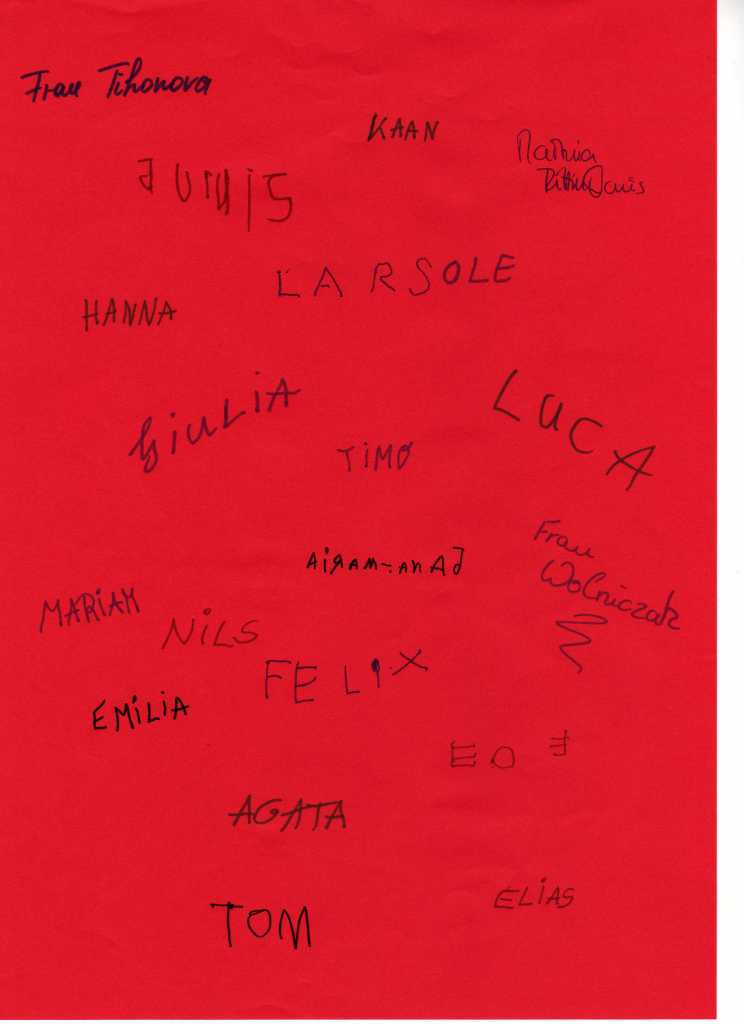 Frau Tihonova
KAAN
LARSOLE
HANNA
GiULiA
LUCA
TiMO
Frau
Wolniczak
AiRAM-ANAJ
MARiAM
NiLS
FELIX
EMiLiA
AGATA
ELiAS
TOM